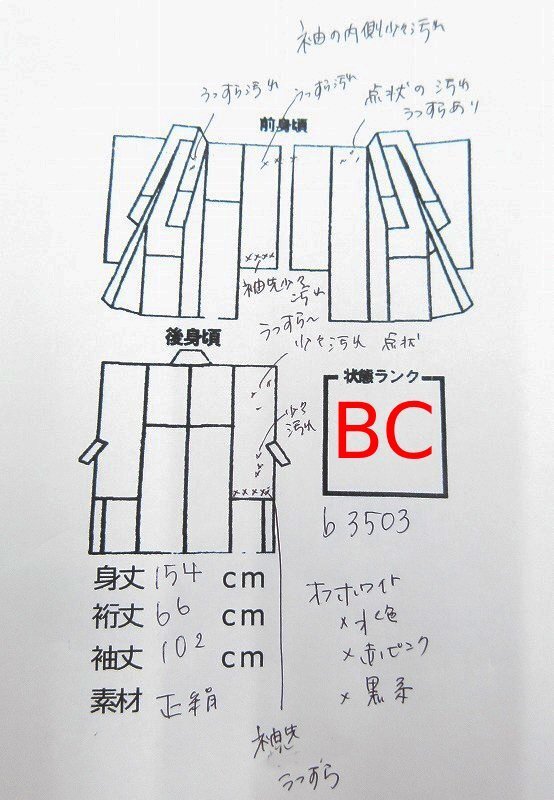 袖の内側少々汚れ
うっすら汚れ
うっすら汚れ
点状の汚れ
うっすらあり
前身頃
袖先少々
汚れ
後身頃
うっすら〜
少々汚れ 点状
少々
汚れ
状態ランク
BC
b3503
身丈 154 cm
裄丈 66 cm
袖丈 102 cm
素材 正絹
オフホワイト
×水色
×赤ピンク
×黒系
袖先
うっすら